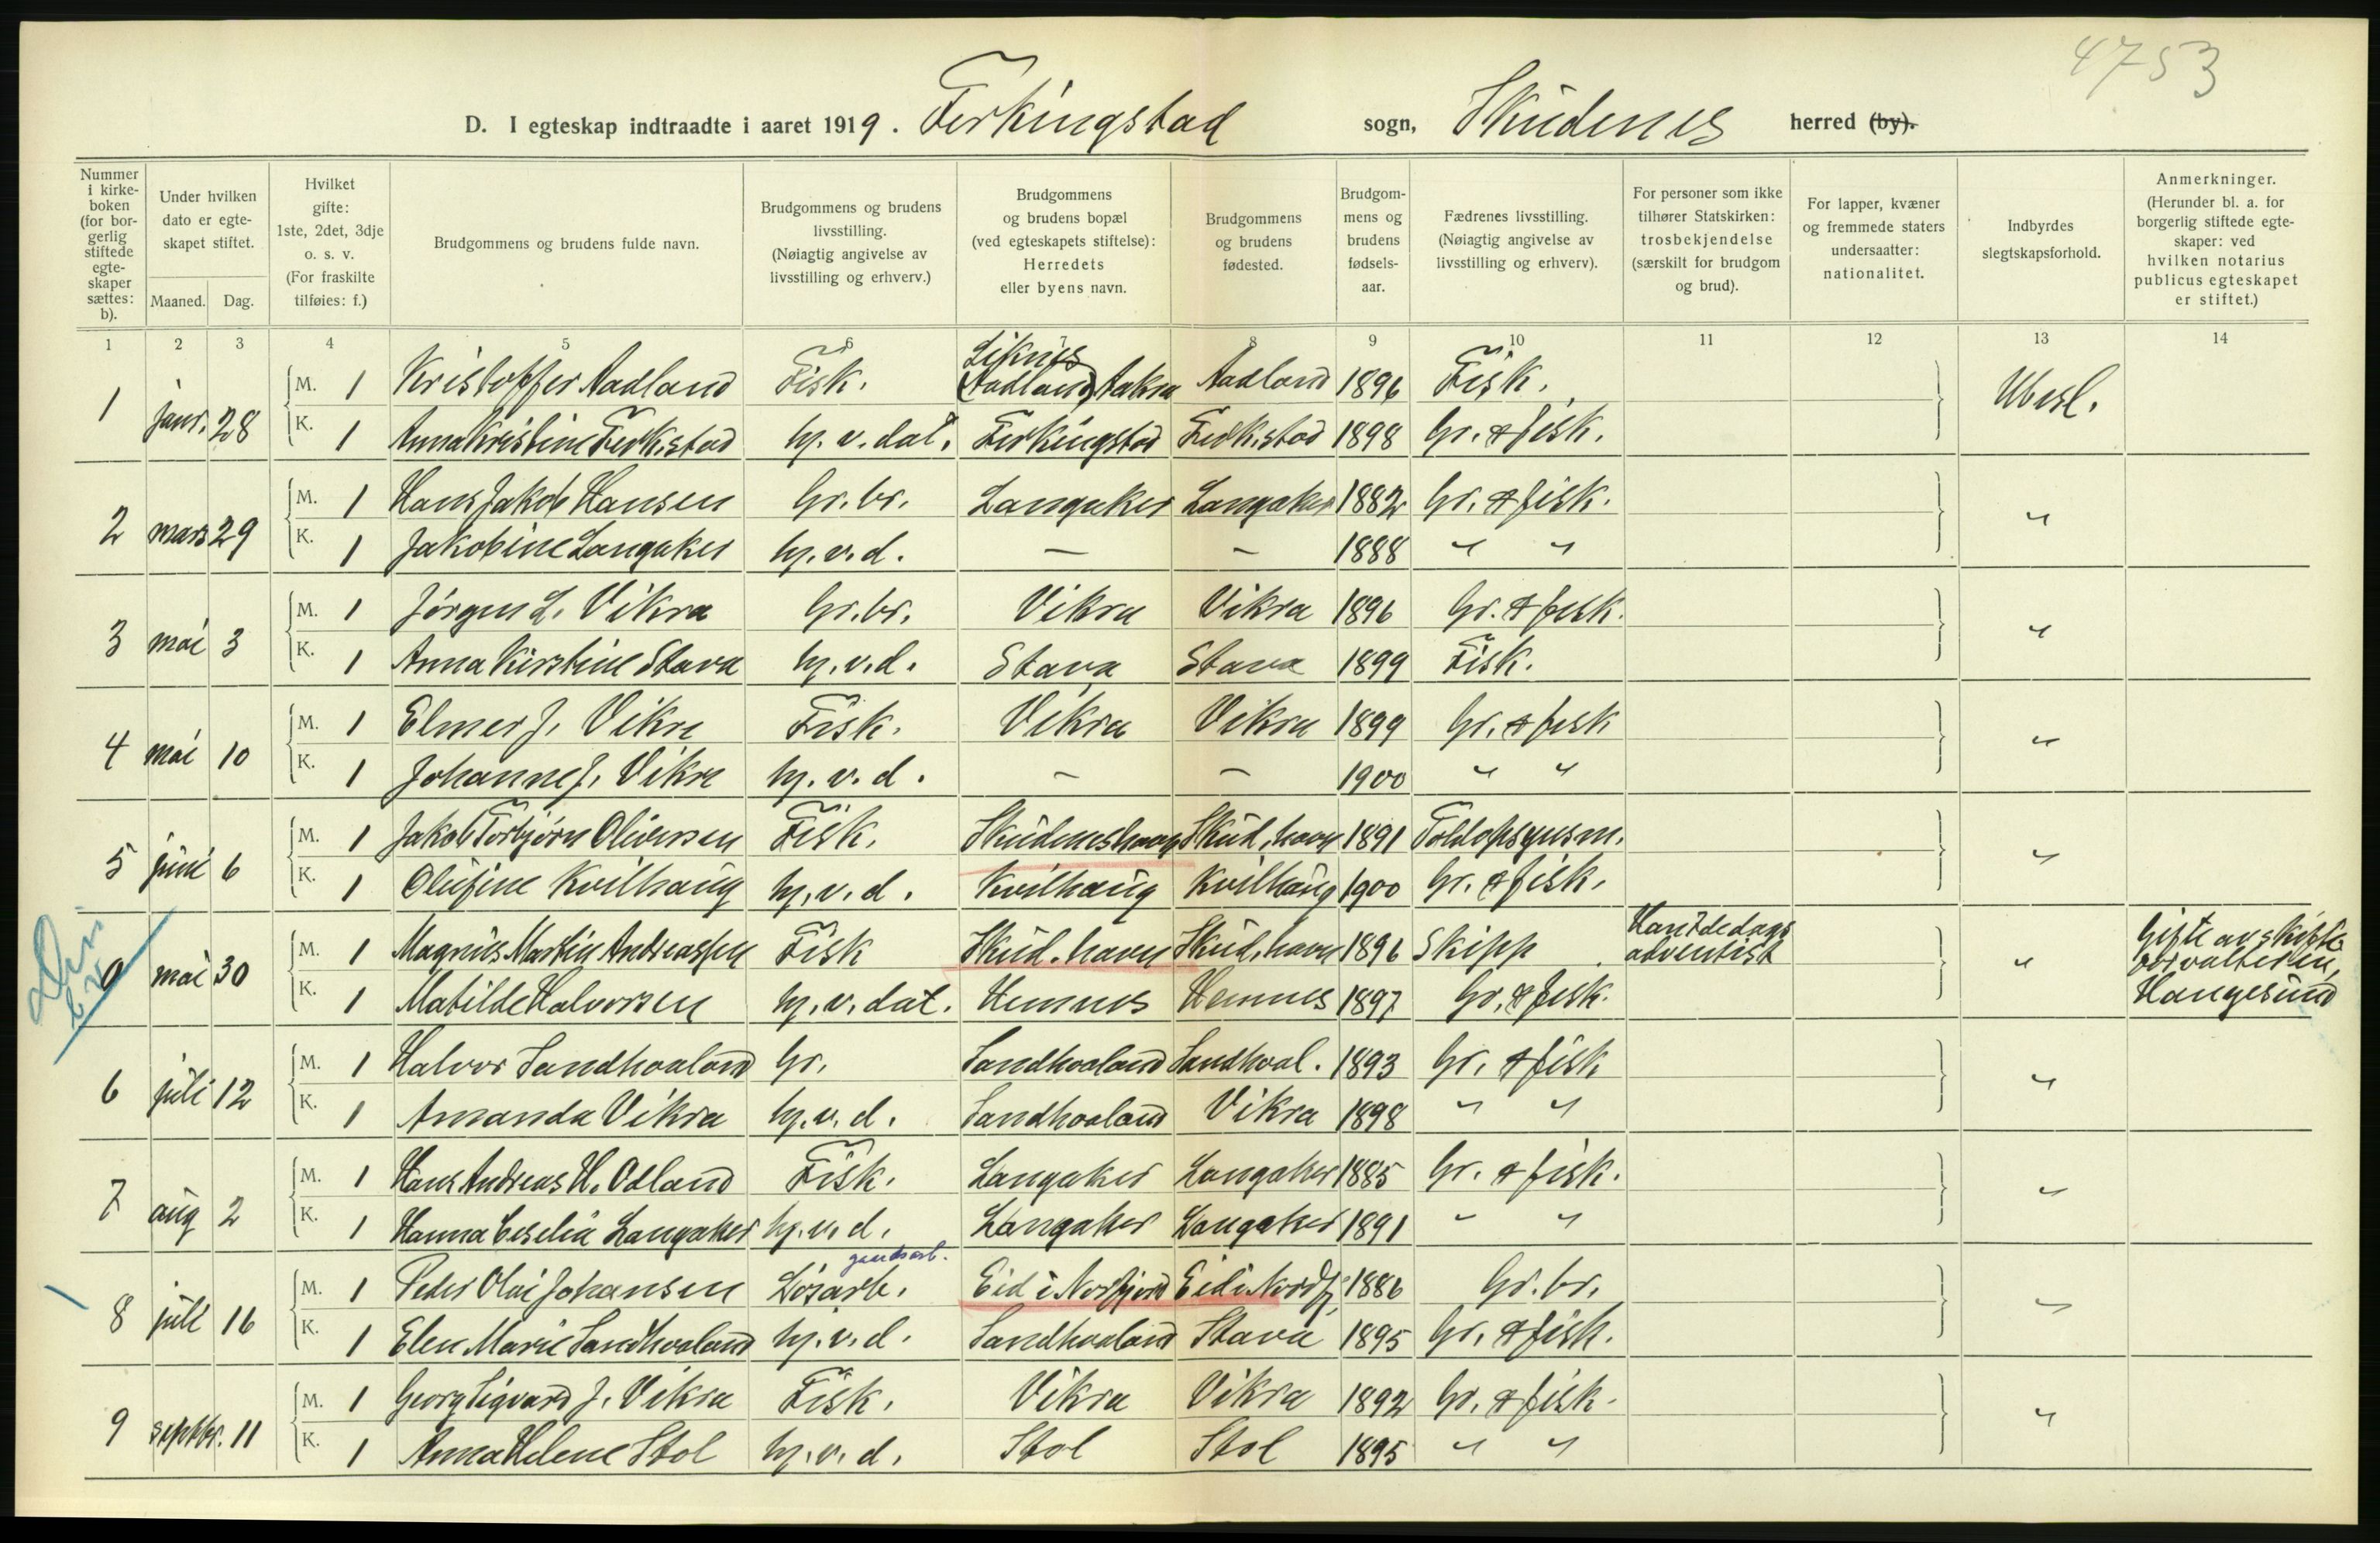 4753
D. I egteskap indtraadte i aaret 1919. Ferkingstad sogn, Skudenes herred (by).
Nummer i kirkeboken (for borgerlig stiftede egteskaper sættes: b).
Under hvilken dato er egteskapet stiftet.
Maaned. Dag.
Hvilket gifte: 1ste, 2det, 3dje o. s. v. (For fraskilte tilføies: f.)
Brudgommens og brudens fulde navn.
Brudgommens og brudens livsstilling. (Nøiagtig angivelse av livsstilling og erhverv.)
Brudgommens og brudens bopæl (ved egteskapets stiftelse): Herredets eller byens navn.
Brudgommens og brudens fødested.
Brudgommens og brudens fødselsaar.
Fædrenes livsstilling. (Nøiagtig angivelse av livsstilling og erhverv).
For personer som ikke tilhører Statskirken: trosbekjendelse (særskilt for brudgom og brud).
For lapper, kvæner og fremmede staters undersaatter: nationalitet.
Indbyrdes slegtskapsforhold.
Anmerkninger. (Herunder bl. a. for borgerlig stiftede egteskaper: ved hvilken notarius publicus egteskapet er stiftet.)
1 2 3 4 5 6 7 8 9 10 11 12 13 14
Liknes
1 janr. 28 M. 1 Kristoffer Aadland Fisk. (Aadland) Aakra Aadland 1896 Fisk. Ubesl.
K. 1 Anna Kristine Ferk.stad hj. v. dat. Ferkingstad Ferk.stad 1898 Gr. & fisk.
2 mars 29 M. 1 Hans Jakob Hansen Gr.br. Langaker Langaker 1882 Gr. & fisk. "
K. 1 Jakobine Langaker hj. v. d. — — 1888 " "
3 mai 3 M. 1 Jørgen L. Vikra Gr.br. Vikra Vikra 1896 Gr. & fisk. "
K. 1 Anna Kirstine Stava hj. v. d. Stava Stava 1899 Fisk.
4 mai 10 M. 1 Elmer J. Vikre Fisk. Vikra Vikra 1899 Gr. & fisk "
K. 1 Johanne J. Vikre hj. v. d. — — 1900 " "
5 juni 6 M. 1 Jakob Torbjørn Oliversen Fisk. Skudeneshavn Skud.havn 1891 Toldopsynsm. "
K. 1 Olufine Kvilhaug hj. v. d. Kvilhaug Kvilhaug 1900 Gr. & fisk.
mai 30 M. 1 Magnus Martin Andreassen Fisk Skud.havn Skud.havn 1896 Skipp Han 7de dags adventist " Gifte av skifteforvalteren, Haugesund
K. 1 Matilde Halvorsen hj. v. dat. Hemnes Hemnes 1897 Gr. & fisk.
6 juli 12 M. 1 Halvor Sandhaaland Gr. Sandhaaland Sandhaal. 1893 Gr. & fisk "
K. 1 Amanda Vikra hj. v. d. Sandhaaland Vikra 1898 " "
7 aug 2 M. 1 Hans Andreas H. Odland Fisk. Langaker Langaker 1885 Gr. & fisk. "
K. 1 Hanna Ceselia Langaker hj. v. d. Langaker Langaker 1891 " "
8 juli 16 M. 1 Peder Olai Johansen Løsarb. Eid i Norfjord Eid i Nordfj. 1886 Gr. br. "
K. 1 Elen Marie Sandhaaland hj. v. d. Sandhaaland Stava 1895 Gr. & fisk.
9 septbr. 11 M. 1 Georg Sigvard J. Vikra Fisk. Vikra Vikra 1892 Gr. & fisk. "
K. 1 Anna Helene Stol hj. v. d. Stol Stol 1895 " "